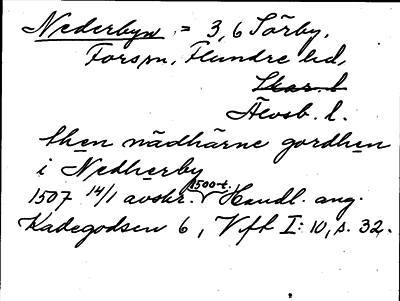 Nederbyn = 3,6 Sörby,
Forsm, Flundre hd,
Skar. l
Älvsb. l.
then nädhärne gordhen
i Nedherby
1507 14/1 avskr. 1500-t. Handl. ang.
Kadegodsen 6, Vft I: 10, s. 32.